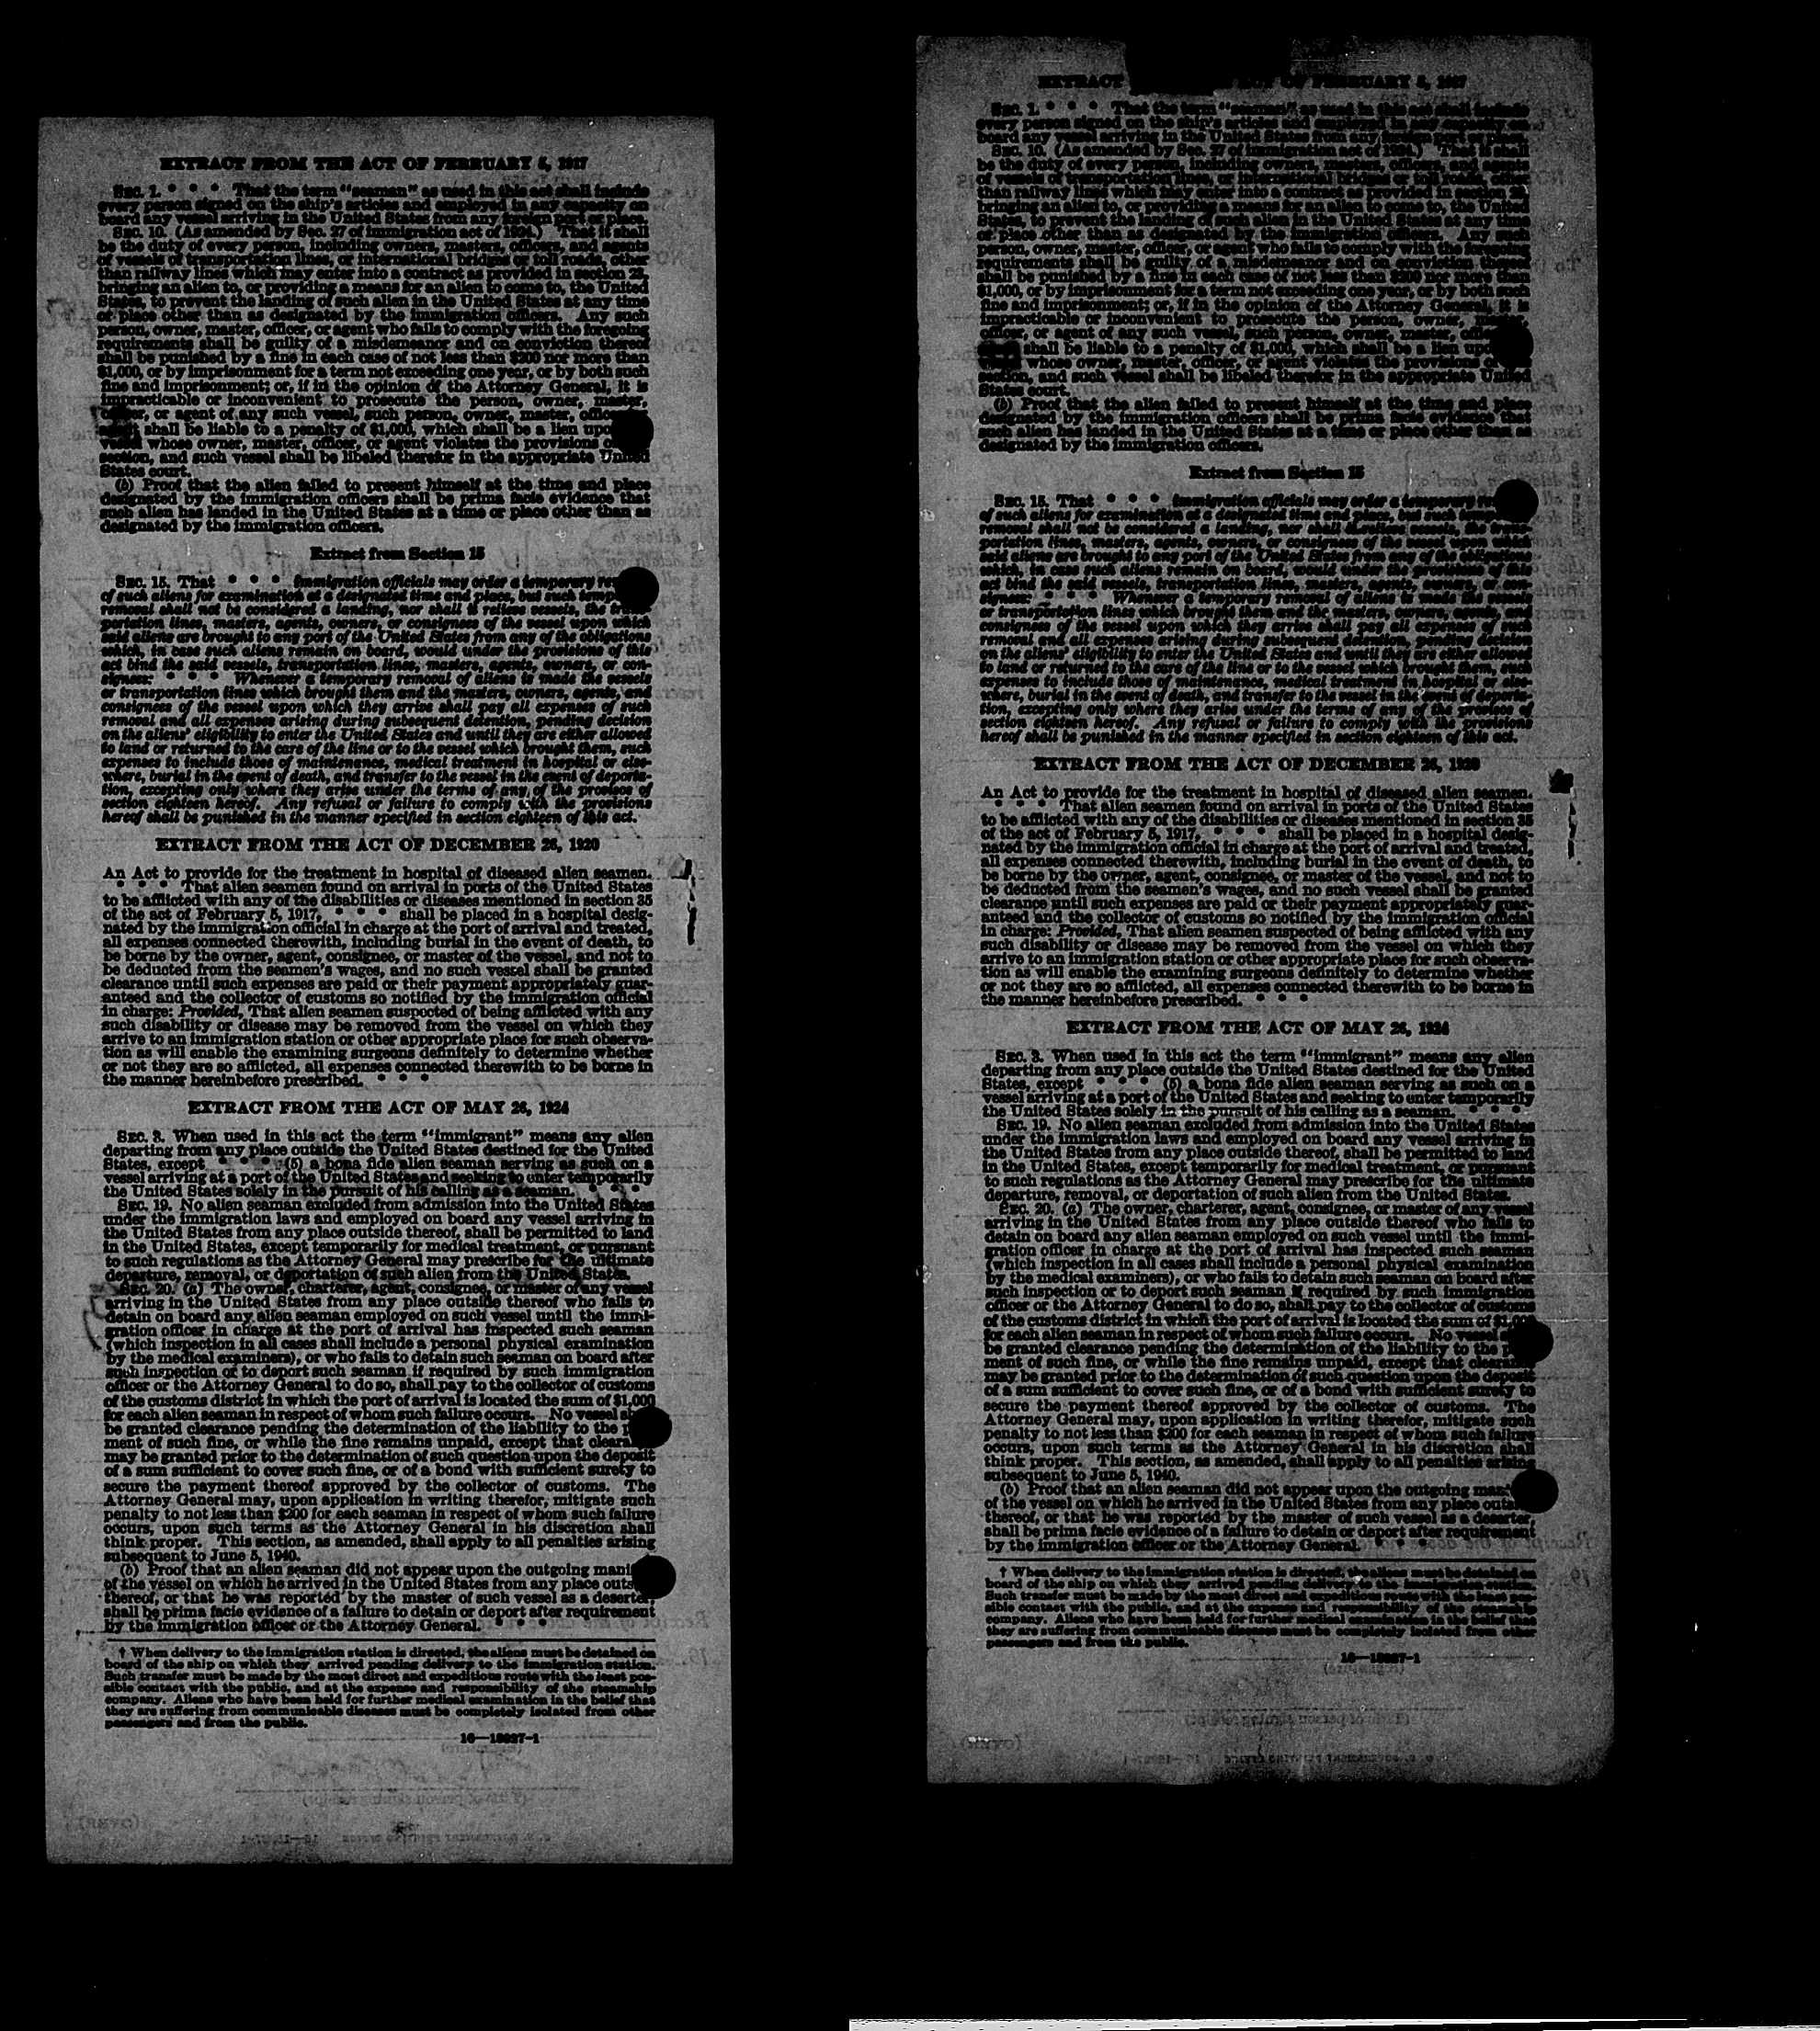 EXTRACT FROM THE ACT OF FEBRUARY 5, 1917
SEC. 1. * * * That the term "seaman" as used in this act shall include
every person signed on the ship's articles and employed in any capacity on
board any vessel arriving in the United States from any foreign port or place.
SEC. 10. (As amended by Sec. 27 of immigration act of 1924.) That it shall
be the duty of every person, including owners, masters, officers, and agents
of vessels of transportation lines, or international bridges or toll roads, other
than railway lines which may enter into a contract as provided in section 23,
bringing an alien to, or providing a means for an alien to come to, the United
States, to prevent the landing of such alien in the United States at any time
or place other than as designated by the immigration officers. Any such
person, owner, master, officer, or agent who fails to comply with the foregoing
requirements shall be guilty of a misdemeanor and on conviction thereof
shall be punished by a fine in each case of not less than $200 nor more than
$1,000, or by imprisonment for a term not exceeding one year, or by both such
fine and imprisonment; or, if in the opinion of the Attorney General, it is
impracticable or inconvenient to prosecute the person, owner, master,
officer, or agent of any such vessel, such person, owner, master,
shall be liable to a penalty of $1,000, which shall be a lien
vessel whose owner, master, officer, or agent violates the provisions
section, and such vessel shall be libeled therefor in the appropriate United
States court.
(b) Proof that the alien failed to present himself at the time and place
designated by the immigration officers shall be prima facie evidence that
such alien has landed in the United States at a time or place other than as
designated by the immigration officers.
Extract from Section 15
SEC. 15. That * * * immigration officials may order a temporary
of such aliens for examination at a designated time and place, but such
removal shall not be considered a landing, nor shall it relieve vessels, the
portation lines, masters, agents, owners, or consignees of the vessel upon which
said aliens are brought to any port of the United States from any of the obligations
which, in case such aliens remain on board, would under the provisions of this
act bind the said vessels, transportation lines, masters, agents, owners, or con-
signees: * * * Whenever a temporary removal of aliens is made the vessels
or transportation lines which brought them and the masters, owners, agents, and
consignees of the vessel upon which they arrive shall pay all expenses of such
removal and all expenses arising during subsequent detention, pending decision
on the aliens' eligibility to enter the United States and until they are either allowed
to land or returned to the care of the line or to the vessel which brought them, such
expenses to include those of maintenance, medical treatment in hospital or else-
where, burial in the event of death, and transfer to the vessel in the event of deporta-
tion, excepting only where they arise under the terms of any of the provisos of
section eighteen hereof. Any refusal or failure to comply with the provisions
hereof shall be punished in the manner specified in section eighteen of this act.
EXTRACT FROM THE ACT OF DECEMBER 26, 1920
An Act to provide for the treatment in hospital of diseased alien seamen.
* * * That alien seamen found on arrival in ports of the United States
to be afflicted with any of the disabilities or diseases mentioned in section 35
of the act of February 5, 1917, * * * shall be placed in a hospital desig-
nated by the immigration official in charge at the port of arrival and treated,
all expenses connected therewith, including burial in the event of death, to
be borne by the owner, agent, consignee, or master of the vessel, and not to
be deducted from the seamen's wages, and no such vessel shall be granted
clearance until such expenses are paid or their payment appropriately guar-
anteed and the collector of customs so notified by the immigration official
in charge: Provided, That alien seamen suspected of being afflicted with any
such disability or disease may be removed from the vessel on which they
arrive to an immigration station or other appropriate place for such observa-
tion as will enable the examining surgeons definitely to determine whether
or not they are so afflicted, all expenses connected therewith to be borne in
the manner hereinbefore prescribed. * * *
EXTRACT FROM THE ACT OF MAY 26, 1924
SEC. 3. When used in this act the term "immigrant" means any alien
departing from any place outside the United States destined for the United
States, except * * * (5) a bona fide alien seaman serving as such on a
vessel arriving at a port of the United States and seeking to enter temporarily
the United States solely in the pursuit of his calling as a seaman. * * *
SEC. 19. No alien seaman excluded from admission into the United States
under the immigration laws and employed on board any vessel arriving in
the United States from any place outside thereof, shall be permitted to land
in the United States, except temporarily for medical treatment, or pursuant
to such regulations as the Attorney General may prescribe for the ultimate
departure, removal, or deportation of such alien from the United States.
SEC. 20. (a) The owner, charterer, agent, consignee, or master of any vessel
arriving in the United States from any place outside thereof who fails to
detain on board any alien seaman employed on such vessel until the immi-
gration officer in charge at the port of arrival has inspected such seaman
(which inspection in all cases shall include a personal physical examination
by the medical examiners), or who fails to detain such seaman on board after
such inspection or to deport such seaman if required by such immigration
officer or the Attorney General to do so, shall pay to the collector of customs
of the customs district in which the port of arrival is located the sum of $1,000
for each alien seaman in respect of whom such failure occurs. No vessel
be granted clearance pending the determination of the liability to the
ment of such fine, or while the fine remains unpaid, except that clearance
may be granted prior to the determination of such question upon the deposit
of a sum sufficient to cover such fine, or of a bond with sufficient surety to
secure the payment thereof approved by the collector of customs. The
Attorney General may, upon application in writing therefor, mitigate such
penalty to not less than $200 for each seaman in respect of whom such failure
occurs, upon such terms as the Attorney General in his discretion shall
think proper. This section, as amended, shall apply to all penalties arising
subsequent to June 5, 1940.
(b) Proof that an alien seaman did not appear upon the outgoing
of the vessel on which he arrived in the United States from any place
thereof, or that he was reported by the master of such vessel as a deserter,
shall be prima facie evidence of a failure to detain or deport after requirement
by the immigration officer or the Attorney General. * * *
† When delivery to the immigration station is directed, the aliens must be detained on
board of the ship on which they arrived pending delivery to the immigration station.
Such transfer must be made by the most direct and expeditious route with the least pos-
sible contact with the public, and at the expense and responsibility of the steamship
company. Aliens who have been held for further medical examination in the belief that
they are suffering from communicable diseases must be completely isolated from other
passengers and from the public.
16—18027-1
EXTRACT OF FEBRUARY 5, 1917
SEC. 1. * * * That the term "seaman" as used in this act shall include
every person signed on the ship's articles and employed in any capacity on
board any vessel arriving in the United States from any foreign port or place.
SEC. 10. (As amended by Sec. 27 of immigration act of 1924.) That it shall
be the duty of every person, including owners, masters, officers, and agents
of vessels of transportation lines, or international bridges or toll roads, other
than railway lines which may enter into a contract as provided in section 23,
bringing an alien to, or providing a means for an alien to come to, the United
States, to prevent the landing of such alien in the United States at any time
or place other than as designated by the immigration officers. Any such
person, owner, master, officer, or agent who fails to comply with the foregoing
requirements shall be guilty of a misdemeanor and on conviction thereof
shall be punished by a fine in each case of not less than $200 nor more than
$1,000, or by imprisonment for a term not exceeding one year, or by both such
fine and imprisonment; or, if in the opinion of the Attorney General, it is
impracticable or inconvenient to prosecute the person, owner, master,
officer, or agent of any such vessel, such person, owner, master,
shall be liable to a penalty of $1,000, which shall be a lien
whose owner, master, officer, or agent violates the provisions
section, and such vessel shall be libeled therefor in the appropriate United
States court.
(b) Proof that the alien failed to present himself at the time and place
designated by the immigration officers shall be prima facie evidence that
such alien has landed in the United States at a time or place other than as
designated by the immigration officers.
Extract from Section 15
SEC. 15. That * * * immigration officials may order a temporary
of such aliens for examination at a designated time and place, but such
removal shall not be considered a landing, nor shall it relieve vessels, the trans-
portation lines, masters, agents, owners, or consignees of the vessel upon which
said aliens are brought to any port of the United States from any of the obligations
which, in case such aliens remain on board, would under the provisions of this
act bind the said vessels, transportation lines, masters, agents, owners, or con-
signees: * * * Whenever a temporary removal of aliens is made the vessels
or transportation lines which brought them and the masters, owners, agents, and
consignees of the vessel upon which they arrive shall pay all expenses of such
removal and all expenses arising during subsequent detention, pending decision
on the aliens' eligibility to enter the United States and until they are either allowed
to land or returned to the care of the line or to the vessel which brought them, such
expenses to include those of maintenance, medical treatment in hospital or else-
where, burial in the event of death, and transfer to the vessel in the event of deporta-
tion, excepting only where they arise under the terms of any of the provisos of
section eighteen hereof. Any refusal or failure to comply with the provisions
hereof shall be punished in the manner specified in section eighteen of this act.
EXTRACT FROM THE ACT OF DECEMBER 26, 1920
An Act to provide for the treatment in hospital of diseased alien seamen.
* * * That alien seamen found on arrival in ports of the United States
to be afflicted with any of the disabilities or diseases mentioned in section 35
of the act of February 5, 1917, * * * shall be placed in a hospital desig-
nated by the immigration official in charge at the port of arrival and treated,
all expenses connected therewith, including burial in the event of death, to
be borne by the owner, agent, consignee, or master of the vessel, and not to
be deducted from the seamen's wages, and no such vessel shall be granted
clearance until such expenses are paid or their payment appropriately guar-
anteed and the collector of customs so notified by the immigration official
in charge: Provided, That alien seamen suspected of being afflicted with any
such disability or disease may be removed from the vessel on which they
arrive to an immigration station or other appropriate place for such observa-
tion as will enable the examining surgeons definitely to determine whether
or not they are so afflicted, all expenses connected therewith to be borne in
the manner hereinbefore prescribed. * * *
EXTRACT FROM THE ACT OF MAY 26, 1924
SEC. 3. When used in this act the term "immigrant" means any alien
departing from any place outside the United States destined for the United
States, except * * * (5) a bona fide alien seaman serving as such on a
vessel arriving at a port of the United States and seeking to enter temporarily
the United States solely in the pursuit of his calling as a seaman. * * *
SEC. 19. No alien seaman excluded from admission into the United States
under the immigration laws and employed on board any vessel arriving in
the United States from any place outside thereof, shall be permitted to land
in the United States, except temporarily for medical treatment, or pursuant
to such regulations as the Attorney General may prescribe for the ultimate
departure, removal, or deportation of such alien from the United States.
SEC. 20. (a) The owner, charterer, agent, consignee, or master of any vessel
arriving in the United States from any place outside thereof who fails to
detain on board any alien seaman employed on such vessel until the immi-
gration officer in charge at the port of arrival has inspected such seaman
(which inspection in all cases shall include a personal physical examination
by the medical examiners), or who fails to detain such seaman on board after
such inspection or to deport such seaman if required by such immigration
officer or the Attorney General to do so, shall pay to the collector of customs
of the customs district in which the port of arrival is located the sum of $1,000
for each alien seaman in respect of whom such failure occurs. No vessel
be granted clearance pending the determination of the liability to the
ment of such fine, or while the fine remains unpaid, except that clearance
may be granted prior to the determination of such question upon the deposit
of a sum sufficient to cover such fine, or of a bond with sufficient surety to
secure the payment thereof approved by the collector of customs. The
Attorney General may, upon application in writing therefor, mitigate such
penalty to not less than $200 for each seaman in respect of whom such failure
occurs, upon such terms as the Attorney General in his discretion shall
think proper. This section, as amended, shall apply to all penalties arising
subsequent to June 5, 1940.
(b) Proof that an alien seaman did not appear upon the outgoing
of the vessel on which he arrived in the United States from any place
thereof, or that he was reported by the master of such vessel as a deserter,
shall be prima facie evidence of a failure to detain or deport after requirement
by the immigration officer or the Attorney General. * * *
† When delivery to the immigration station is directed, the aliens must be detained on
board of the ship on which they arrived pending delivery to the immigration station.
Such transfer must be made by the most direct and expeditious route with the least pos-
sible contact with the public, and at the expense and responsibility of the steamship
company. Aliens who have been held for further medical examination in the belief that
they are suffering from communicable diseases must be completely isolated from other
passengers and from the public.
16—18027-1